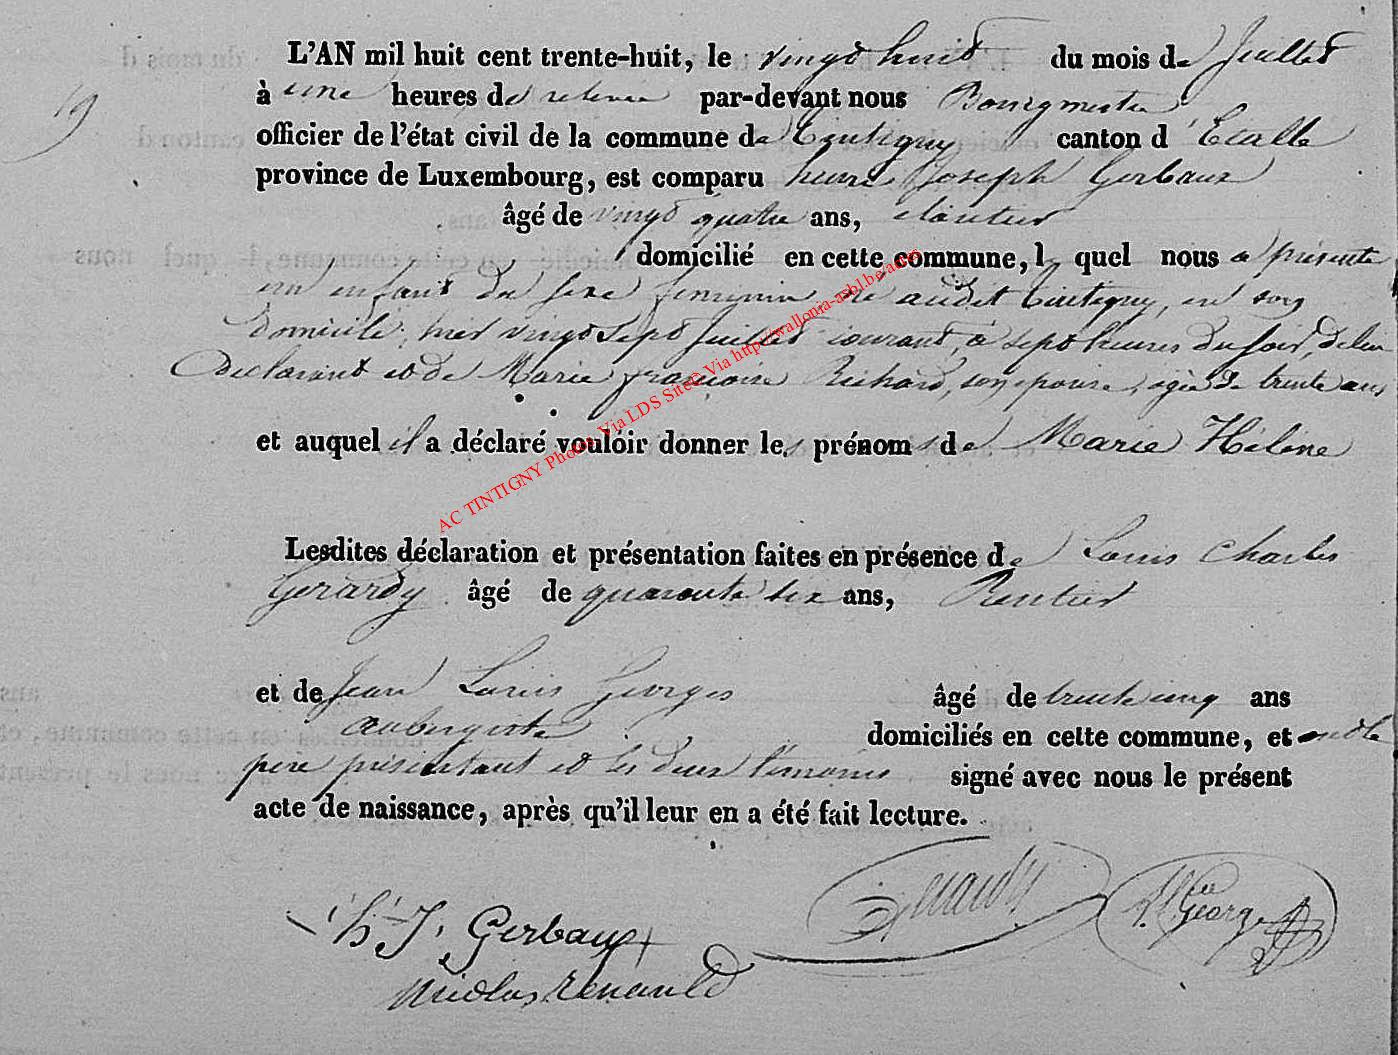 19
L'AN mil huit cent trente-huit, le vingt huit du mois de Juillet
à une heures de relevée par-devant nous Bourgmestre
officier de l'état civil de la commune de Tintigny canton d'Etalle
province de Luxembourg, est comparu henri Joseph Gerbaux
âgé de vingt quatre ans, cloutier
domicilié en cette commune, l quel nous a présenté
un enfant du sexe feminin, né audit Tintigny, en son
domicile, vingt sept Juillet courant, à sept heures du soir, de lui
declarant et de Marie françoise Richard, son epouse, agée de trente ans
et auquel il a déclaré vouloir donner les prénoms de Marie Hélène
AC TINTIGNY Photos Via LDS Site© Via http://wallonia-asbl.be/actes
Lesdites déclaration et présentation faites en présence de Louis Charles
Gerardy âgé de quarante six ans, Rentier
et de Jean Louis Georges âgé de trente cinq ans
aubergiste domiciliés en cette commune, et
pere présentant et les deux témoins signé avec nous le présent
acte de naissance, après qu'il leur en a été fait lecture.
h. J. Gerbaux
Gerardy
Georges
Nicolas Renauld